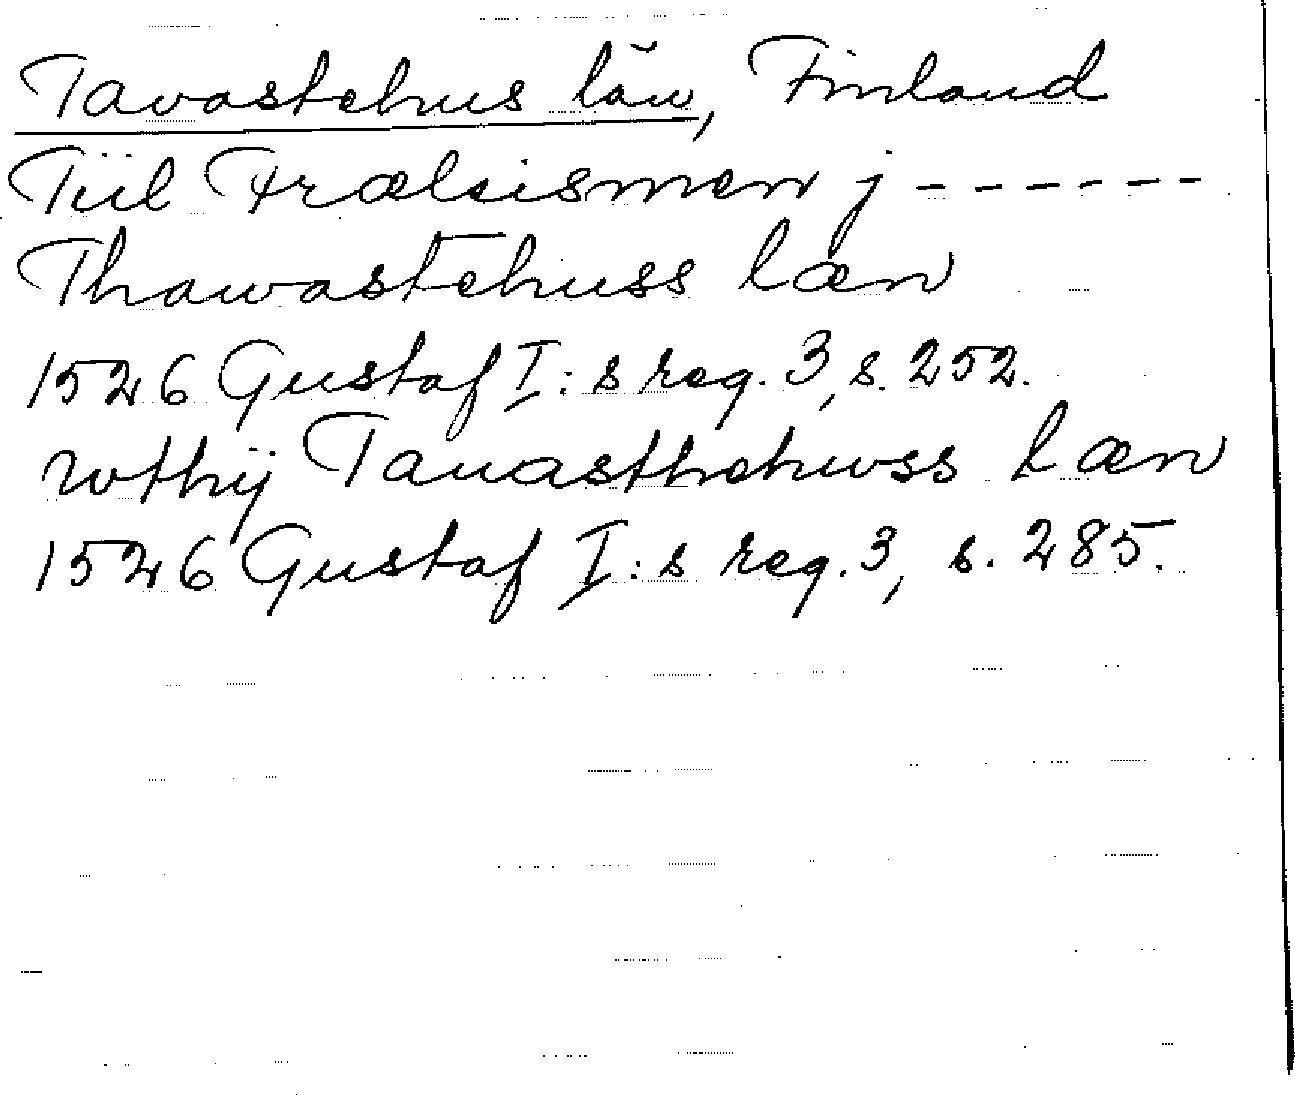 Tavastehus län, Finland
Tiil Frælsismen j - - - - - -
Thawastehuss læn
1526 Gustaf I:s reg. 3, s. 252.
wthij Tauasthehwss læn
1526 Gustaf I:s reg. 3, s. 285.